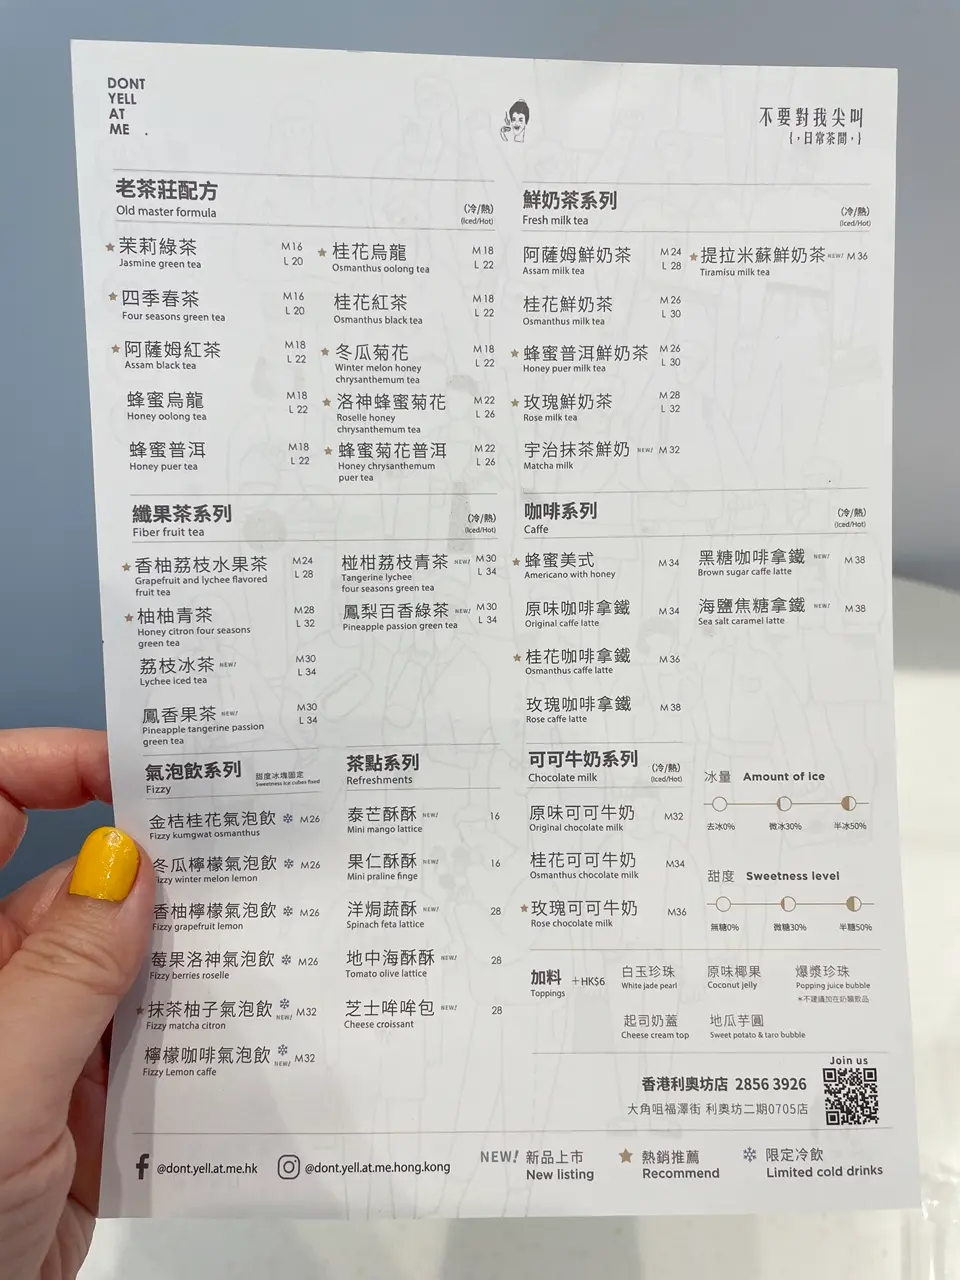 DONT
YELL
AT
ME .
不要對我尖叫
{,日常茶間,}
老茶莊配方
Old master formula
(冷/熱)
(Iced/Hot)
茉莉綠茶
Jasmine green tea
M 16
L 20
四季春茶
Four seasons green tea
M 16
L 20
阿薩姆紅茶
Assam black tea
M 18
L 22
蜂蜜烏龍
Honey oolong tea
M 18
L 22
蜂蜜普洱
Honey puer tea
M 18
L 22
桂花烏龍
Osmanthus oolong tea
M 18
L 22
桂花紅茶
Osmanthus black tea
M 18
L 22
冬瓜菊花
Winter melon honey
chrysanthemum tea
M 18
L 22
洛神蜂蜜菊花
Roselle honey
chrysanthemum tea
M 22
L 26
蜂蜜菊花普洱
Honey chrysanthemum
puer tea
M 22
L 26
鮮奶茶系列
Fresh milk tea
(冷/熱)
(Iced/Hot)
阿薩姆鮮奶茶
Assam milk tea
M 24
L 28
桂花鮮奶茶
Osmanthus milk tea
M 26
L 30
蜂蜜普洱鮮奶茶
Honey puer milk tea
M 26
L 30
玫瑰鮮奶茶
Rose milk tea
M 28
L 32
宇治抹茶鮮奶 NEW! M 32
Matcha milk
提拉米蘇鮮奶茶 NEW! M 36
Tiramisu milk tea
纖果茶系列
Fiber fruit tea
(冷/熱)
(Iced/Hot)
香柚荔枝水果茶
Grapefruit and lychee flavored
fruit tea
M 24
L 28
柚柚青茶
Honey citron four seasons
green tea
M 28
L 32
荔枝冰茶 NEW!
Lychee iced tea
M 30
L 34
鳳香果茶 NEW!
Pineapple tangerine passion
green tea
M 30
L 34
椪柑荔枝青茶 NEW!
Tangerine lychee
four seasons green tea
M 30
L 34
鳳梨百香綠茶 NEW!
Pineapple passion green tea
M 30
L 34
咖啡系列
Caffe
(冷/熱)
(Iced/Hot)
蜂蜜美式 M 34
Americano with honey
原味咖啡拿鐵 M 34
Original caffe latte
桂花咖啡拿鐵 M 36
Osmanthus caffe latte
玫瑰咖啡拿鐵 M 38
Rose caffe latte
黑糖咖啡拿鐵 NEW! M 38
Brown sugar caffe latte
海鹽焦糖拿鐵 NEW! M 38
Sea salt caramel latte
氣泡飲系列
Fizzy
甜度冰塊固定
Sweetness ice cubes fixed
金桔桂花氣泡飲 M 26
Fizzy kumgwat osmanthus
冬瓜檸檬氣泡飲 M 26
Fizzy winter melon lemon
香柚檸檬氣泡飲 M 26
Fizzy grapefruit lemon
莓果洛神氣泡飲 M 26
Fizzy berries roselle
抹茶柚子氣泡飲 NEW! M 32
Fizzy matcha citron
檸檬咖啡氣泡飲 NEW! M 32
Fizzy Lemon caffe
茶點系列
Refreshments
泰芒酥酥 NEW! 16
Mini mango lattice
果仁酥酥 NEW! 16
Mini praline finge
洋焗蔬酥 NEW! 28
Spinach feta lattice
地中海酥酥 NEW! 28
Tomato olive lattice
芝士哞哞包 NEW! 28
Cheese croissant
可可牛奶系列
Chocolate milk
(冷/熱)
(Iced/Hot)
原味可可牛奶 M32
Original chocolate milk
桂花可可牛奶 M34
Osmanthus chocolate milk
玫瑰可可牛奶 M36
Rose chocolate milk
冰量 Amount of ice
去冰0% 微冰30% 半冰50%
甜度 Sweetness level
無糖0% 微糖30% 半糖50%
加料 +HK$6
Toppings
白玉珍珠
White jade pearl
原味椰果
Coconut jelly
爆漿珍珠
Popping juice bubble
*不建議加在奶類飲品
起司奶蓋
Cheese cream top
地瓜芋圓
Sweet potato & taro bubble
Join us
香港利奧坊店 2856 3926
大角咀福澤街 利奧坊二期0705店
@dont.yell.at.me.hk
@dont.yell.at.me.hong.kong
NEW! 新品上市
New listing
熱銷推薦
Recommend
限定冷飲
Limited cold drinks